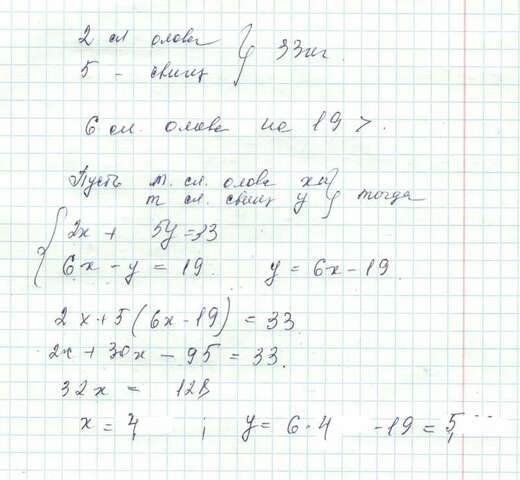 2 сл олова } 33 кг.
5 - свинц
6 сл. олова на 19 >.
Пусть м. сл. олова x кг } тогда
m сл. свинц y
2x + 5y = 33
6x - y = 19. y = 6x - 19.
2x + 5(6x - 19) = 33
2x + 30x - 95 = 33.
32x = 128
x = 4 ; y = 6·4 - 19 = 5